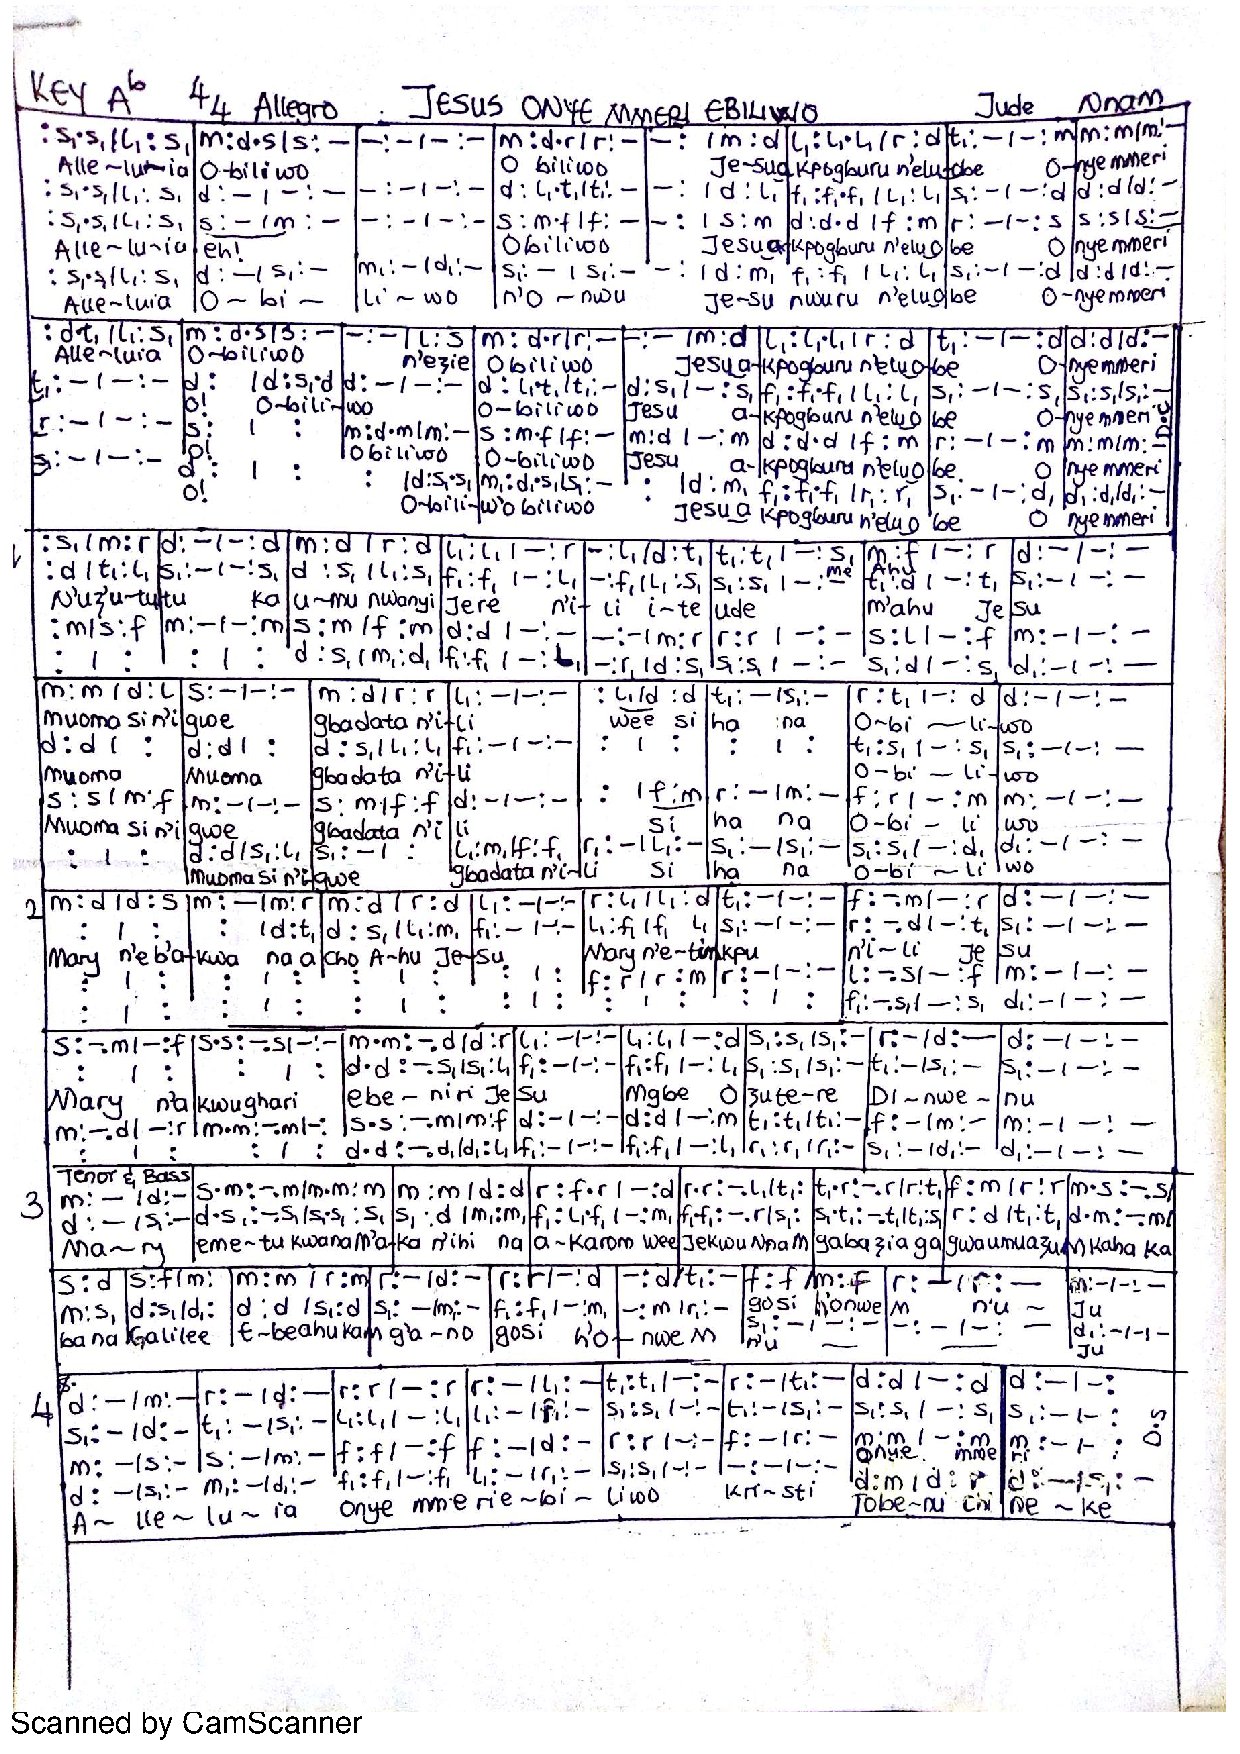 KEY Ab 4/4 Allegro JESUS ONYE MMERI EBILIWO Jude Nnam
:s₁.s₁/l₁:s₁|m:d.s/s:-|-:-/-:-|m:d.r/r:-|-: /m:d|l₁:l₁.l₁/r:d|t₁:-/-:m|m:m/m:-
Alle~lu~ia O-biliwo O biliwo Je-sua kpogburu n'elu-obe O-nyemmeri
:s₁.s₁/l₁:s₁|d:-/-:-|-:-/-:-|d:l₁.t₁/t₁:-|-: /d:l₁|f₁:f₁.f₁/l₁:l₁|s₁:-/-:d|d:d/d:-
:s₁.s₁/l₁:s₁|s:-/m:-|-:-/-:-|s:m.f/f:-|-: /s:m|d:d.d/f:m|r:-/-:s|s:s/s:-
Alle~lu~ia eh! Obiliwo Jesua-kpogburu n'elu obe O nyemmeri
:s₁.s₁/l₁:s₁|d:-/s₁:-|m₁:-/d₁:-|s₁:-/s₁:-|-: /d:m₁|f₁:f₁/l₁:l₁|s₁:-/-:d|d:d/d:-
Alle~luia O~bi~ li~wo n'O~nwu Je-su nwuru n'eluobe O-nyemmeri
:d.t₁/l₁:s₁|m:d.s/s:-|-:-/l:s|m:d.r/r:-|-:-/m:d|l₁:l₁.l₁/r:d|t₁:-/-:d|d:d/d:-
Alle~luia O-biliwo n'ezie Obiliwo Jesu a-kpogburu n'elu obe O-nyemmeri
t₁:-/-:-|d: /d:s₁.d|d:-/-:-|d:l₁.t₁/t₁:-|d:s₁/-:s₁|f₁:f₁.f₁/l₁:l₁|s₁:-/-:s₁|s₁:s₁/s₁:-
O! O-bili-wo O-biliwo Jesu a-kpogburu n'elu obe O-nyemmeri
r:-/-:-|s: / : |m:d.m/m:-|s:m.f/f:-|m:d/-:m|d:d.d/f:m|r:-/-:m|m:m/m:- D.C
O! Obiliwo O-biliwo Jesu a-kpogburu n'eluo be O nyemmeri
s₁:-/-:-|d: / : | : /d:s₁.s₁|m₁:d₁.s₁/s₁:-| : /d:m₁|f₁:f₁.f₁/r₁:r₁|s₁:-/-:d₁|d₁:d₁/d₁:-
O! O-bili-w'o biliwo Jesu a kpogburu n'elu o 'be O nyemmeri
1 :s₁/m:r|d:-/-:d|m:d/r:d|l₁:l₁/-:r|-:l₁/d:t₁|t₁:t₁/-:s₁|m:f/-:r|d:-/-:-
me Ahu
:d/t₁:l₁|s₁:-/-:s₁|d:s₁/l₁:s₁|f₁:f₁/-:l₁|-:f₁/l₁:s₁|s₁:s₁/-:-|t₁:d/-:t₁|s₁:-/-:-
N'uzu-tutu ka u~mu nwanyi Jere n'i-li i-te ude m'ahu Je su
:m/s:f|m:-/-:m|s:m/f:m|d:d/-:-|-:-/m:r|r:r/-:-|s:l/-:f|m:-/-:-
: / : | : / : |d:s₁/m₁:d₁|f₁:f₁/-:l₁|-:r₁/d:s₁|s₁:s₁/-:-|s₁:d/-:s₁|d₁:-/-:-
m:m/d:l|s:-/-:-|m:d/r:r|l₁:-/-:-| :l₁/d:d|t₁:-/s₁:-|r:t₁/-:d|d:-/-:-
Muoma si n'i gwe gbadata n'i-li wee si ha na O~bi~li-wo
d:d/ : |d:d/ : |d:s₁/l₁:l₁|f₁:-/-:-| : / : | : / : |t₁:s₁/-:s₁|s₁:-/-:-
Muoma Muoma gbadata n'i-li O-bi-li-wo
s:s/m:f|m:-/-:-|s:m/f:f|d:-/-:-| : /f:m|r:-/m:-|f:r/-:m|m:-/-:-
Muoma si n'i gwe gbadata n'i li si ha na O-bi-li wo
: / : |d:d/s₁:l₁|s₁:-/ : |l₁:m₁/f:f₁|r₁:-/l₁:-|s₁:-/s₁:-|s₁:s₁/-:d₁|d₁:-/-:-
Muoma si n'i-gwe gbadata n'i-li si ha na O-bi~li wo
2 m:d/d:s|m:-/m:r|m:d/r:d|l₁:-/-:-|r:l₁/l₁:d|t₁:-/-:-|f:-.m/-:r|d:-/-:-
: / : | : /d:t₁|d:s₁/l₁:m₁|f₁:-/-:-|l₁:f₁/f₁ l₁|s₁:-/-:-|r:-.d/-:t₁|s₁:-/-:-
Mary n'eb'a-kwa na a cho A-hu Je-su Mary n'e-tinkpu n'i-li Je su
: / : | : / : | : / : | : / : |f:r/r:m|r:-/-:-|l:-.s/-:f|m:-/-:-
: / : | : / : | : / : | : / : | : / : | : / : |f₁:-.s₁/-:s₁|d₁:-/-:-
s:-.m/-:f|s.s:-.s/-:-|m.m:-.d/d:r|l₁:-/-:-|l₁:l₁/-:d|s₁:s₁/s₁:-|r:-/d:-|d:-/-:-
: / : | : / : |d.d:-.s₁/s₁:l₁|f₁:-/-:-|f₁:f₁/-:l₁|s₁:s₁/s₁:-|t₁:-/s₁:-|s₁:-/-:-
Mary n'a kwughari ebe-niri Je su Mgbe O zute-re Di-nwe-nu
m:-.d/-:r|m.m:-.m/-:|s.s:-.m/m:f|d:-/-:-|d:d/-:m|t₁:t₁/t₁:-|f:-/m:-|m:-/-:-
: / : | : / : |d.d:-.d₁/d₁:l₁|f₁:-/-:-|f₁:f₁/-:l₁|r₁:r₁/r₁:-|s₁:-/d₁:-|d₁:-/-:-
Tenor & Bass
3 m:-/d:-|s.m:-.m/m.m:m|m:m/d:d|r:f.r/-:d|r.r:-.l₁/t₁:|t₁.r:-.r/r:t₁|f:m/r:r|m.s:-.s/
d:-/s₁:-|d.s₁:-.s₁/s₁.s₁:s₁|s₁:d/m₁:m₁|f₁:l₁.f₁/-:m₁|f₁.f₁:-.r/s₁:|s₁.t₁:-.t₁/t₁:s₁|r:d/t₁:t₁|d.m:-.m/
Ma~ry eme-tu kwana m'a-ka n'ihi na a-Karom wee Jekwu Nna M gabaziaga gwaumuazu M kaha ka
s:d|s:f/m:|m:m/r:m|r:-/d:-|r:r/-:d|-:d/t₁:-|f:f/m:f|r:-/r:-|m:-/-:-
gosi h'onwe M n'u~ Ju
m:s₁|d:s₁/d₁:|d:d/s₁:d|s₁:-/m₁:-|f₁:f₁/-:m₁|-:m/r₁:-|s₁:-/-:-|-:-/-:-|d₁:-/-:-
ba na Galilee t-beahukam g'a-no gosi h'o-nwe M n'u Ju
4 𝄋 d:-/m:-|r:-/d:-|r:r/-:r|r:-/l₁:-|t₁:t₁/-:-|r:-/t₁:-|d:d/-:d|d:-/-:
s₁:-/d:-|t₁:-/s₁:-|l₁:l₁/-:l₁|l₁:-/f₁:-|s₁:s₁/-:-|t₁:-/s₁:-|s₁:s₁/-:s₁|s₁:-/-: D.S
m:-/s:-|s:-/m:-|f:f/-:f|f:-/d:-|r:r/-:-|f:-/r:-|m:m/-:m|m:-/-:
Onye mme ri
d:-/s₁:-|m₁:-/d₁:-|f₁:f₁/-:f₁|l₁:-/r₁:-|s₁:s₁/-:-|-:-/-:-|d:m/d:r|d:-/s₁:-
A~ lle~lu~ia onye mmerie~bi~liwo Kri~sti Tobe~nu Chi Ne~ke
Scanned by CamScanner